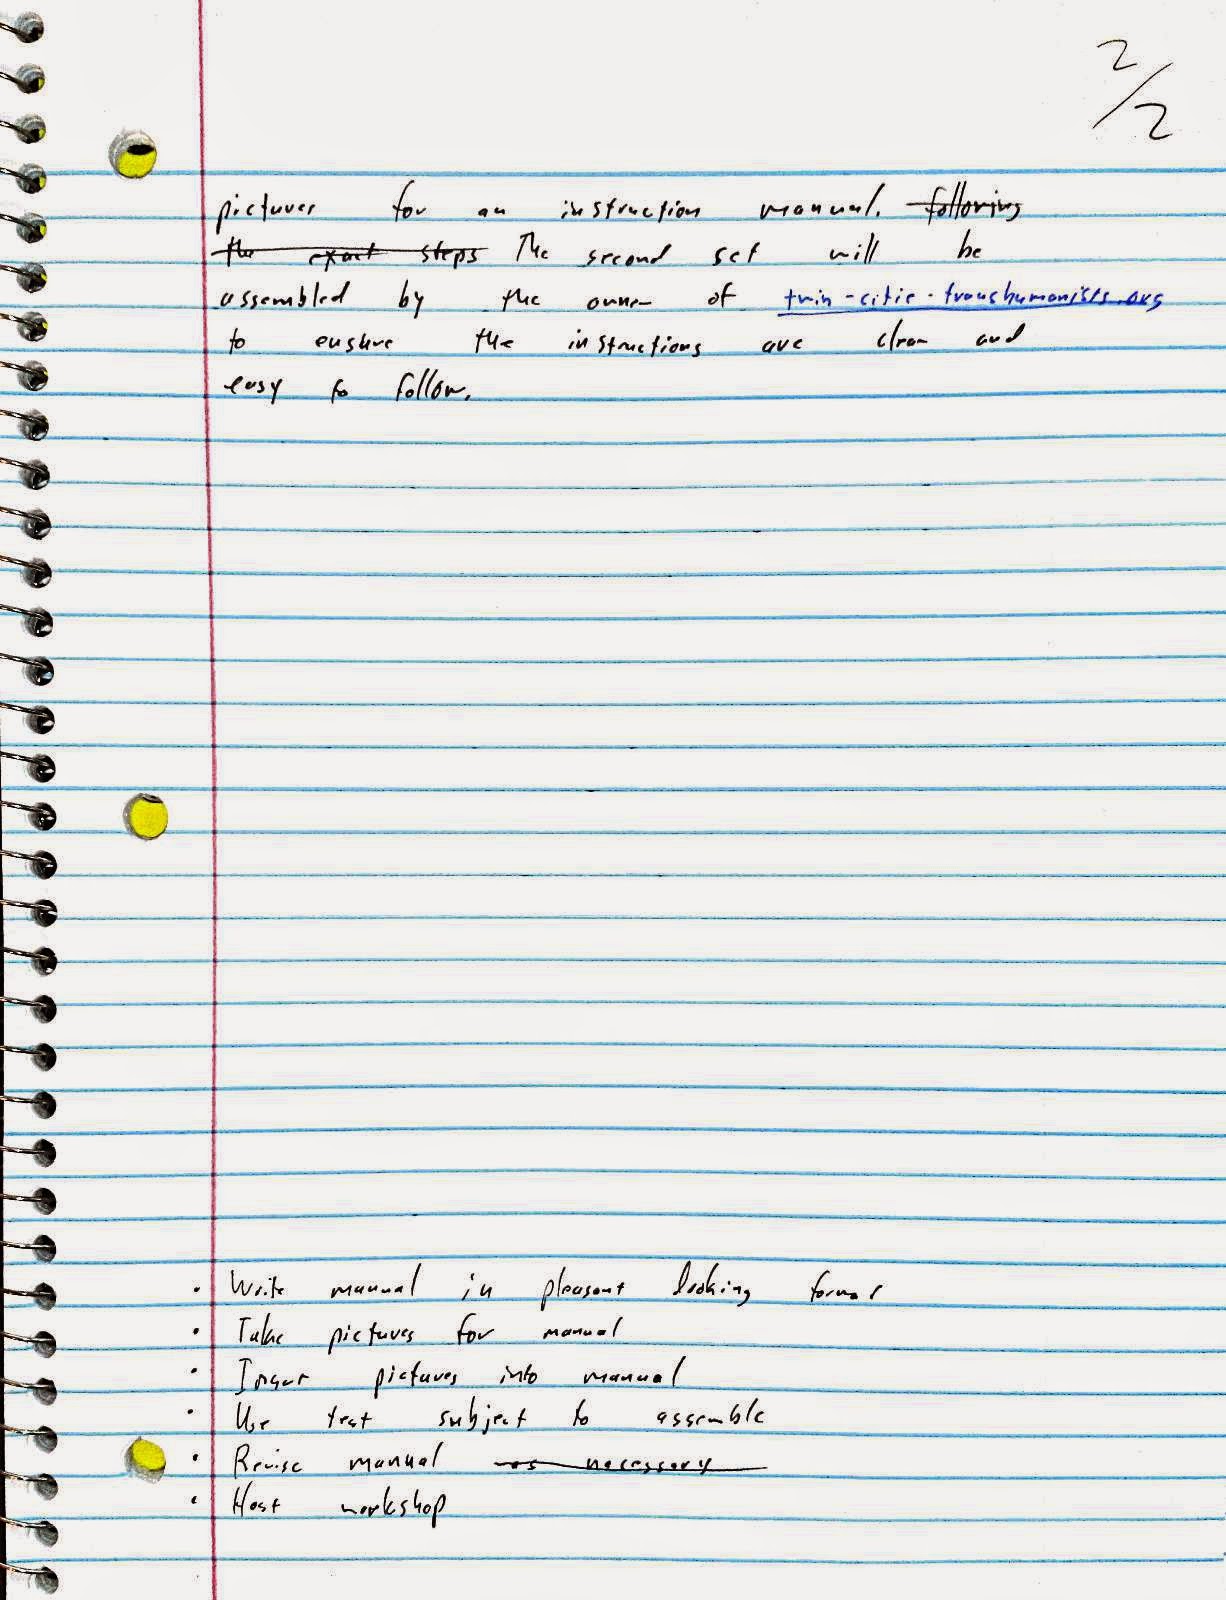 2/2
pictures for an instruction manual. following
the exact steps The second set will be
assembled by the owner of twin-citie-transhumanists.org
to ensure the instructions are clear and
easy to follow.
· Write manual in pleasant looking format
· Take pictures for manual
· Insert pictures into manual
· Use test subject to assemble
· Revise manual as necessary
· Host workshop